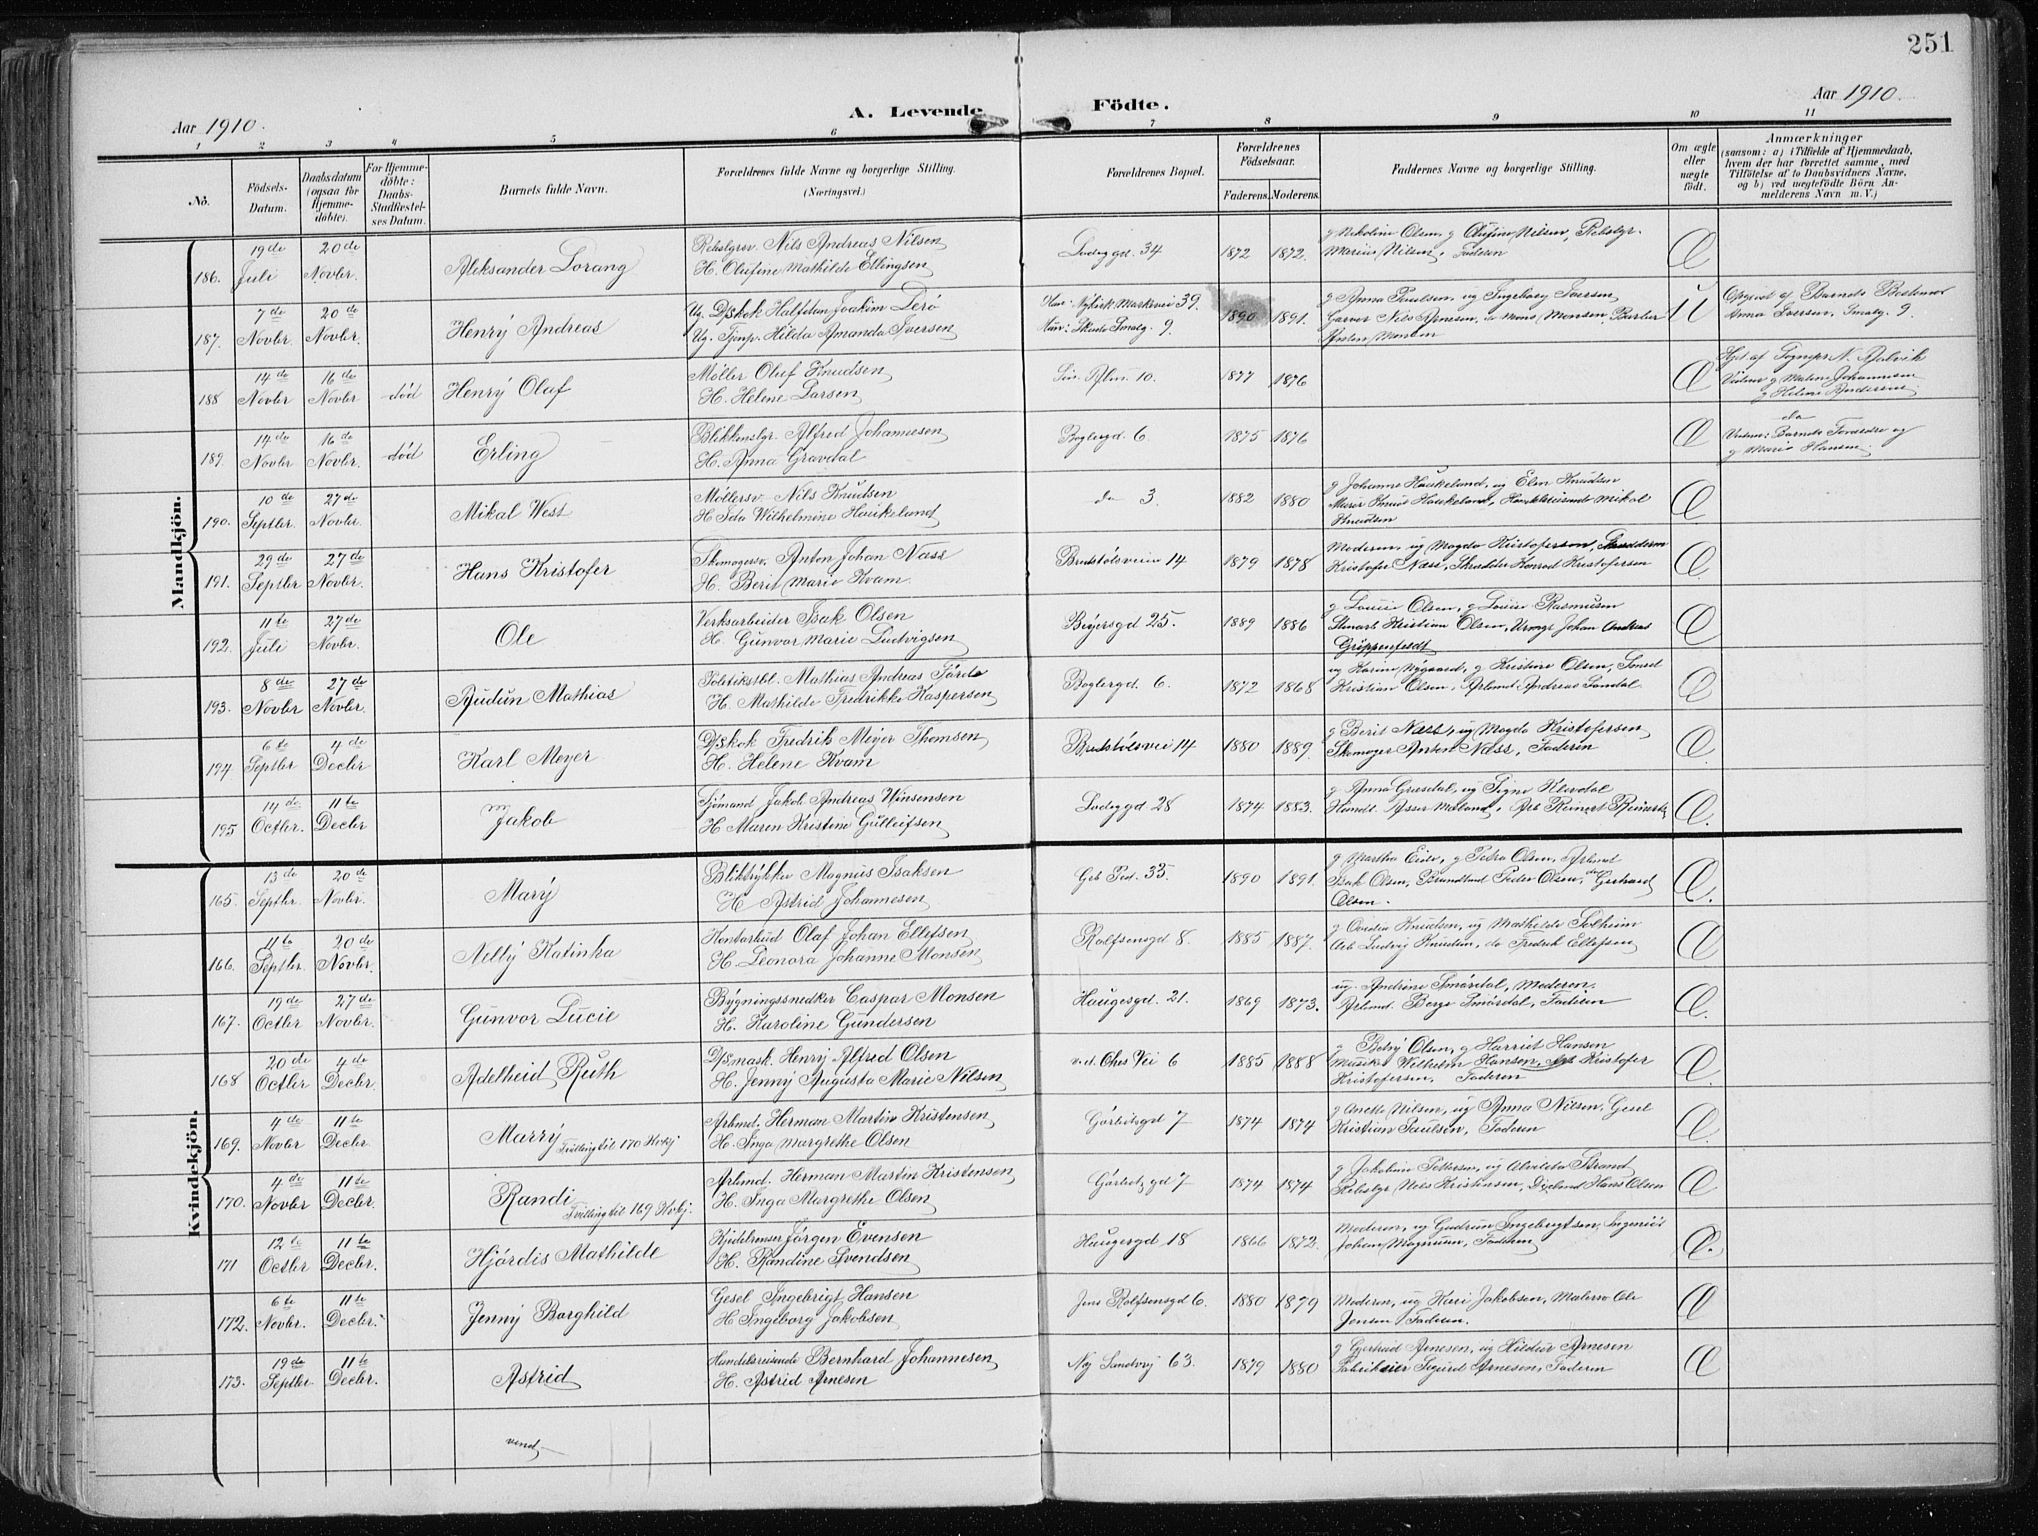 251
Aar 1910.
A. Levende Födte.
Aar 1910.
1 2 3 4 5 6 7 8 9 10 11
No.
Födsels-Datum.
Daabsdatum (ogsaa for Hjemmedöbte).
For Hjemmedöbte: Daabs-Stadfæstelses Datum.
Barnets fulde Navn.
Forældrenes fulde Navne og borgerlige Stilling.
(Næringsvei.)
Forældrenes Bopæl.
Forældrenes Födselsaar.
Faderens. Moderens.
Faddernes Navne og borgerlige Stilling.
Om ægte eller uægte födt.
Anmærkninger
(saasom: a) i Tilfælde af Hjemmedaab, hvem der har forrettet samme, med Tilföielse af to Daabsvidners Navne, og b) ved uægtefödte Börn Anmelderens Navn m. V.)
Mandkjön.
186. 19de Juli 20de Novbr. Aleksander Lorang
Rebslgrsv. Nils Andreas Nilsen
H. Olufine Mathilde Ellingsen
Lodeggd. 34 1872 1872.
g Nikoline Olsen, g Olufine Nilsen, Rebslgr.
Marius Nilsen, Faderen
187. 7de Novbr. 20de Novbr. Henry Andreas
Ug. Dskok Halfdan Joakim Lerö
Ug. Tjenp. Hilda Amanda Iversen
Nykirk. Markevei 39.
Smalg. 9. 1890 1891.
g Anna Paulsen, ug Ingeborg Iversen
Garver Nils Arnesen, do Mons Monsen, Barber
Anton Monsen
U
Opgivet af Barnets Bestemor
Anna Iversen, Smalg. 9.
188 14de Novbr 16de Novbr. död Henry Olaf
Möller Oluf Knudsen
H. Helene Larsen
Alm. 10. 1877 1876
Hpt. af Sognepr. N.
Vidner g Malene Johannesen
g Helene Andersen
189. 14de Novbr 16de Novbr. död Erling
Blikkenslgr. Alfred Johannesen
H. Anna Gravdal
Boglergd. 6. 1875 1876
do
Vidner: Barnets Forældre og
g Marie Hansen
190. 10de Septbr. 27de Novbr. Mikal West
Möllersv. Nils Knudsen
H. Ida Wilhelmine Haukeland
do 3. 1882 1880
g Johanne Haukeland, ug Elen Knudsen
Murer Knud Haukeland, Handelsreisende Mikal
Knudsen
191. 29de Septbr 27de Novbr. Hans Kristofer
Skomagersv. Anton Johan Næss
H. Berit Marie Kvam
Brødstölsveien 14 1879 1878
Moderen, ug Magda Kristofersen, Skrædderen
Kristofer Næss, Skrædder Konrad Kristofersen
192. 11te Juli 27de Novbr. Ole
Verksarbeider Isak Olsen
H. Gunvor Marie Ludvigsen
Beyersgd 25. 1889 1886
g Louise Olsen, g Louise Rasmusen
Kristian Olsen, Johan Andreas
Grippenfeldt
193. 8de Novbr 27de Novbr. Audun Mathias
Politikstbl. Mathias Andreas Förde
H. Mathilde Fredrikke Kaspersen
Boglergd. 6. 1872 1868
ug Karine Nygaard, g Kristine Olsen, Smed
Kristian Olsen, Arbmd Andreas Sandal
194 6te Septbr 4de Decbr Karl Meyer
Dskok Fredrik Meyer Thomsen
H. Helene Kvam
Brødstölsvei 14 1880 1889.
g Berit Næss, ug Magda Kristofersen
Skomager Anton Næss, Faderen
195 14de Octbr. 11te Decbr Jakob
Sjömand Jakob Andreas Vinsensen
H Maren Kristine Gulleifsen
Lodeggd 28 1874 1883.
g Anna Græsdal, ug Signe Klevdal
Handl. Asser Meland, Arb Reinert Reinerts
Kvindekjön.
165. 13de Septbr. 20de Novbr. Mary
Bliktrykker Magnus Isaksen
H. Astrid Johannesen
33. 1890 1891.
g Martha Eide, g Petra Olsen, Arbmd
Isak Olsen, Brandmd Peder Olsen, do Gerhard
Olsen.
166. 11te Septbr. 20de Novbr. Nelly Katinka
Kontorbud Olaf Johan Ellefsen
H. Leonora Johanne Monsen
Rolfsensgd 8. 1885 1887.
g Ovedia Knudsen, ug Mathilde Solheim
Arb Ludvig Knudsen, do Fredrik Ellefsen
167. 19de Octbr 27de Novbr. Gunvor Lucie
Bygningssnedker Caspar Monsen
H. Karoline Gundersen
Haugesgd. 21. 1869 1873.
ug. Andrine Smördal, Moderen.
Arbmd. Berge Smördal, Faderen
168 20de Octbr 4de Decbr. Adelheid Ruth
Dsmask. Henry Alfred Olsen
H. Jenny Augusta Marie Nilsen
Vei 6 1885 1888
g Betsy Olsen, g Harriet Hansen
Musiker Wilhelm Hansen, Kristofer
Kristofersen, Faderen
169. 4de Novbr 11te Decbr. Marry
Tvilling til 170 Kvkj.
Arbmd. Herman Martin Kristensen
H. Inga Margrethe Olsen
Görbitzgd 7 1874 1874
g Anette Nilsen, ug Anna Nilsen, Gesel
Kristian Paulsen, Faderen
170. 4de Novbr 11te Decbr. Randi
Tvilling til 169 Kvkj.
Arbmd. Herman Martin Kristensen
H. Inga Margrethe Olsen
Görbitzgd 7 1874 1874
g Jakobine Pettersen, ug Alvilda Strand
Rebslgr Nils Kristensen, Hans Olsen
171 12te Octbr 11te Decbr. Hjördis Mathilde
Kjedelrenser Jörgen Evensen
H. Randine Svendsen
Haugesgd 18 1866 1872.
Moderen, ug Gudrun Ingebrigtsen, Ingeniör
Johan Magnusen, Faderen
172. 6te Novbr. 11te Decbr. Jenny Borghild
Gesel Ingebrigt Hansen
H Ingeborg Jakobsen
Jens Rolfsensgd 6. 1880 1879
Moderen, ug Kari Jakobsen, Malersv Ole
Jensen, Faderen.
173. 19de Septbr 11te Decbr. Astrid
Handelsreisende Bernhard Johannesen
H. Astrid Arnesen
Ny Sandvig 63. 1879 1880
g Gjertrud Arnesen, ug Hildur Arnesen
Fabrikeier Sigurd Arnesen, Faderen
vend